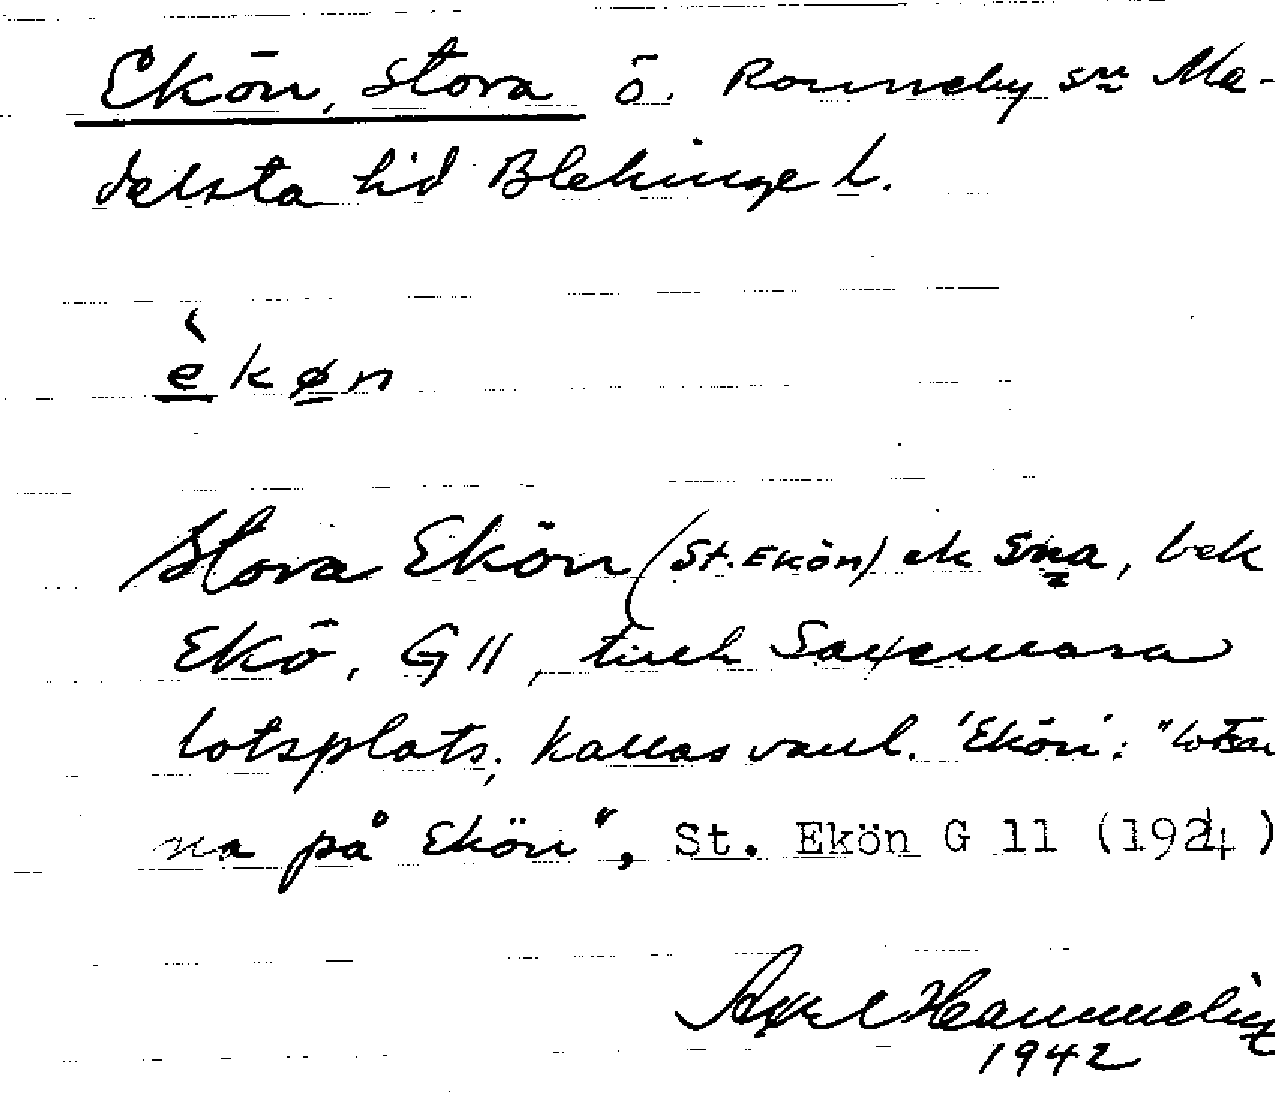 Ekön, Stora ö. Ronneby sn Me-
delsta hd Blekinge l.
èkøn
Stora Ekön (St. Ekön) ek sna, bek
Ekö, G11, turk Saxemara
lotsplats; kallas vanl. 'Ekön': "lotsar
na på Ekön", St. Ekön G 11 (1924)
Axel
1942